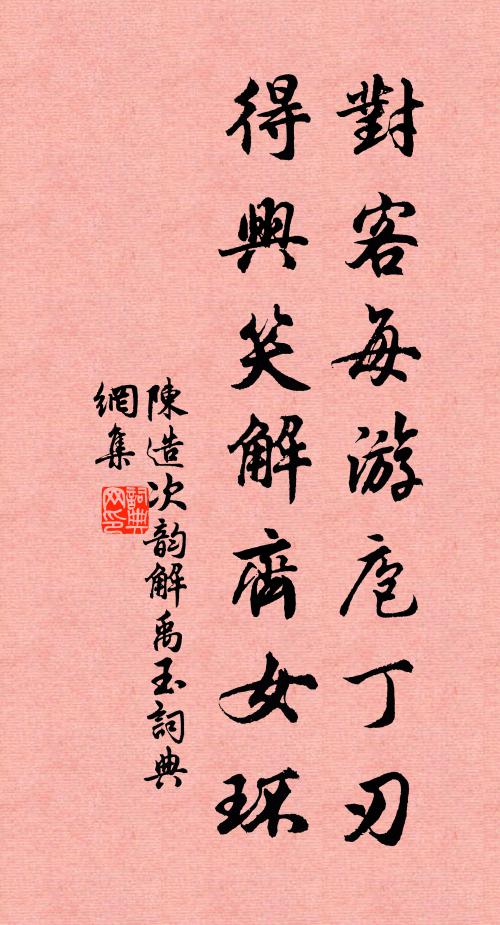 對客每游庖丁刃
得興笑解齊女環
陳造次韵解禹玉詞典
網集
詞典网印